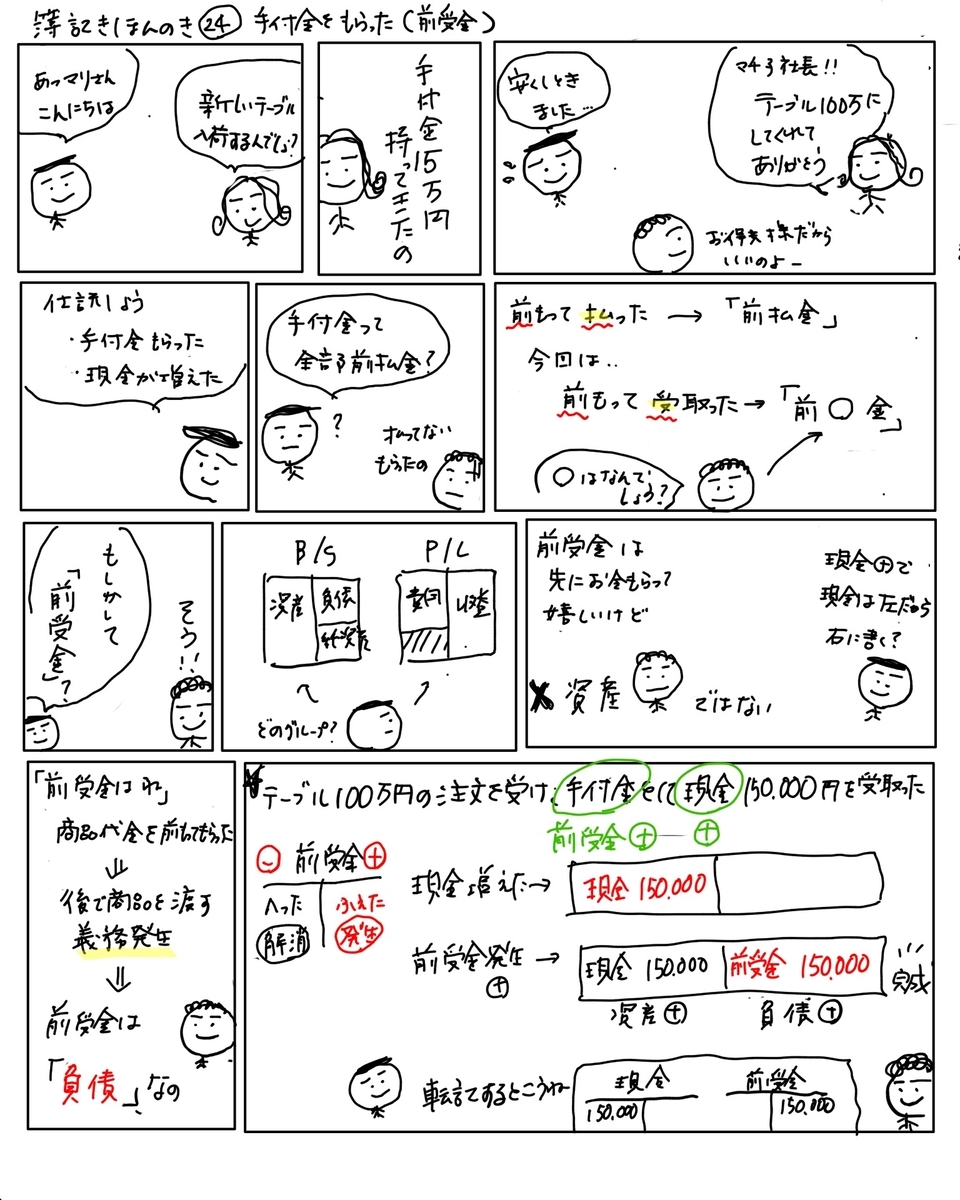 簿記きほんのき㉔ 手付金をもらった(前受金)
あっマリさん
こんにちは
新しいテーブル
入荷するんでしょ?
手付金15万円
持ってきたの
安くしとき
ました…
マチ子社長!!
テーブル100万に
してくれて
ありがとう
お得意様だから
いいのよー
仕訳しよう
・手付金もらった
・現金が増えた
手付金って
全部前払金?
?
払ってない
もらったの
前もって払った → 「前払金」
今回は..
前もって受取った→「前○金」
○はなんで
しょう?
もしかして
「前受金」?
そう!!
B/S P/L
資産 負債 費用 収益
純資産
どのグループ?
前受金は
先にお金もらって
嬉しいけど
✖資産 ではない
現金⊕で
現金は左だから
右に書く?
「前受金はね」
商品代金を前もってもらった
⇓
後で商品を渡す
義務発生
⇓
前受金は
「負債」なの
テーブル100万円の注文を受け、手付金として現金150,000円を受取った
前受金⊕ ⊕
⊖ 前受金⊕
へった ふえた
解消 発生
現金増えた→ 現金 150,000
前受金発生→ 現金 150,000 前受金 150,000 完成
⊕ 資産⊕ 負債⊕
転記するとこうね
現金 前受金
150,000 150,000